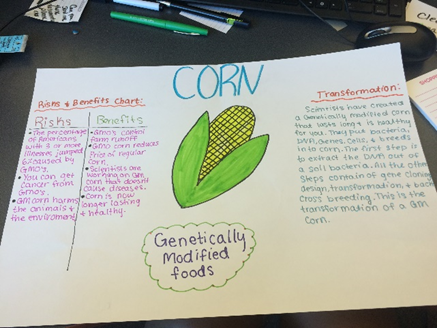 CORN
Risks & Benefits Chart:
Risks
• The percentage
of Americans
with 3 or more
illnesses jumped
caused by
GMO's.
• You can get
cancer from
GMO's.
• GM corn harms
the animals &
the environment
Benefits
• GMO's
farm runoff
• GMO corn reduces
Price of regular
corn.
• Scientists are
working on GM
corn that doesn't
cause diseases.
• Corn is now
longer lasting
& healthy.
Transformation:
Scientists have created
a Genetically modified corn
that lasts long & is healthy
for you. They put bacteria,
DNA, genes, cells, & breeds
in to corn. The first step is
to extract the DNA out of
a soil bacteria. All the other
steps contain of gene cloning,
design, transformation, & back
cross breeding. This is the
transformation of a GM
Corn.
Genetically
Modified
foods